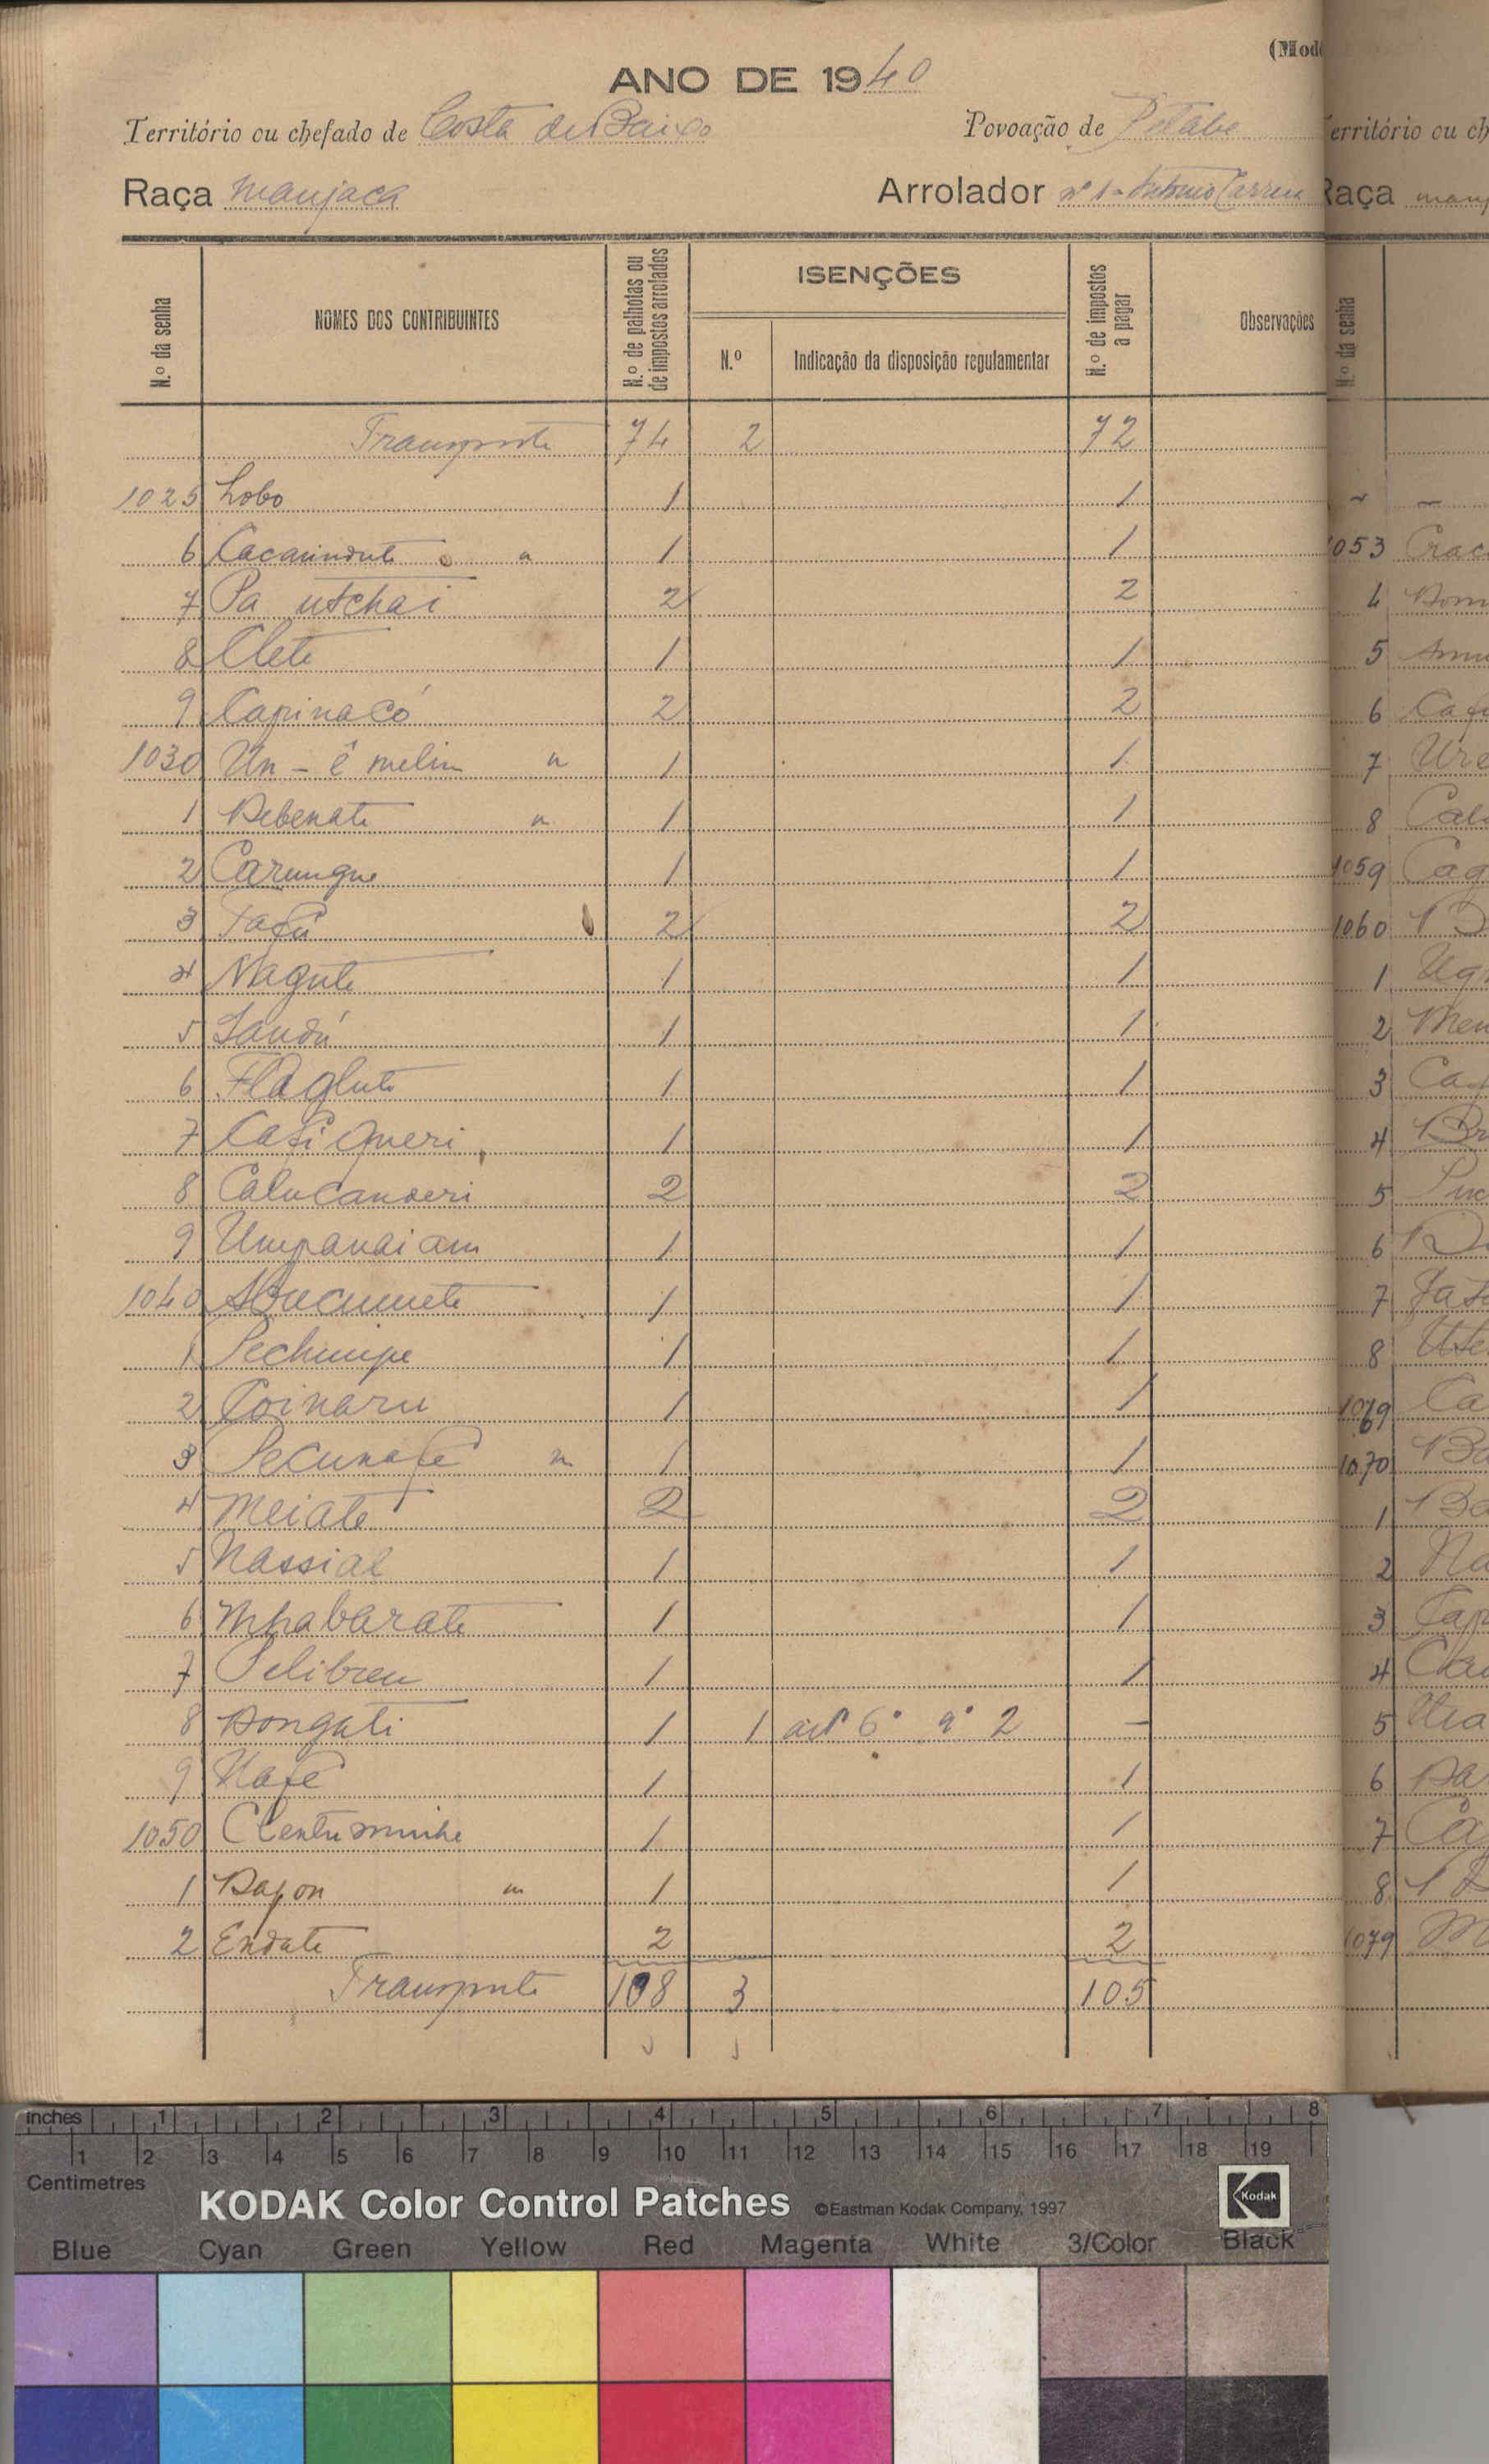 (Mod
ANO DE 1940
Território ou chefado de Costa de Baixo Povoação de Petabe
Raça manjaca Arrolador nº 1 - Antonio Carreia
N.º da senha
NOMES DOS CONTRIBUINTES
N.º de palhotas ou de impostos arrolados
ISENÇÕES
N.º
Indicação da disposição regulamentar
N.º de impostos a pagar
Observações
Transporte 74 2 72
1025 Lobo 1 1
6 1 1
7 Pa utchai 2 2
8 Clete 1 1
9 Capinacó 2 2
1030 Un - ê melim 1 1
1 Bebenate 1 1
2 Carungue 1 1
3 Tafú 2 2
4 Nagute 1 1
5 Sandú 1 1
6 Flaglute 1 1
7 Cafi Queri 1 1
8 Calucanderi 2 2
9 Umpanai am 1 1
1040 1 1
1 Pechuipe 1 1
2 Coinaru 1 1
3 Secunafe 1 1
4 Meiate 2 2
5 Nassial 1 1
6 Mhabarate 1 1
7 1 1
8 Bongati 1 1 artº 6º nº 2 -
9 Nafe 1 1
1050 1 1
1 1 1
2 Endate 2 2
Transporte 108 3 105
erritório ou ch
Raça manj
N.º da senha
1053 Crac
4 Bom
5
6 Caf
7 Ure
8 Cal
1059 Cag
1060 B
1 Ug
2 Men
3 Ca
4 Br
5
6
7
8 Ute
1069 Ca
1070 Ba
1 Ba
2 Na
3 Cap
4
5
6
7 Ca
8
1079 M
inches 1 2 3 4 5 6 7 8
1 2 3 4 5 6 7 8 9 10 11 12 13 14 15 16 17 18 19
Centimetres
KODAK Color Control Patches ©Eastman Kodak Company, 1997 Kodak
Blue Cyan Green Yellow Red Magenta White 3/Color Black